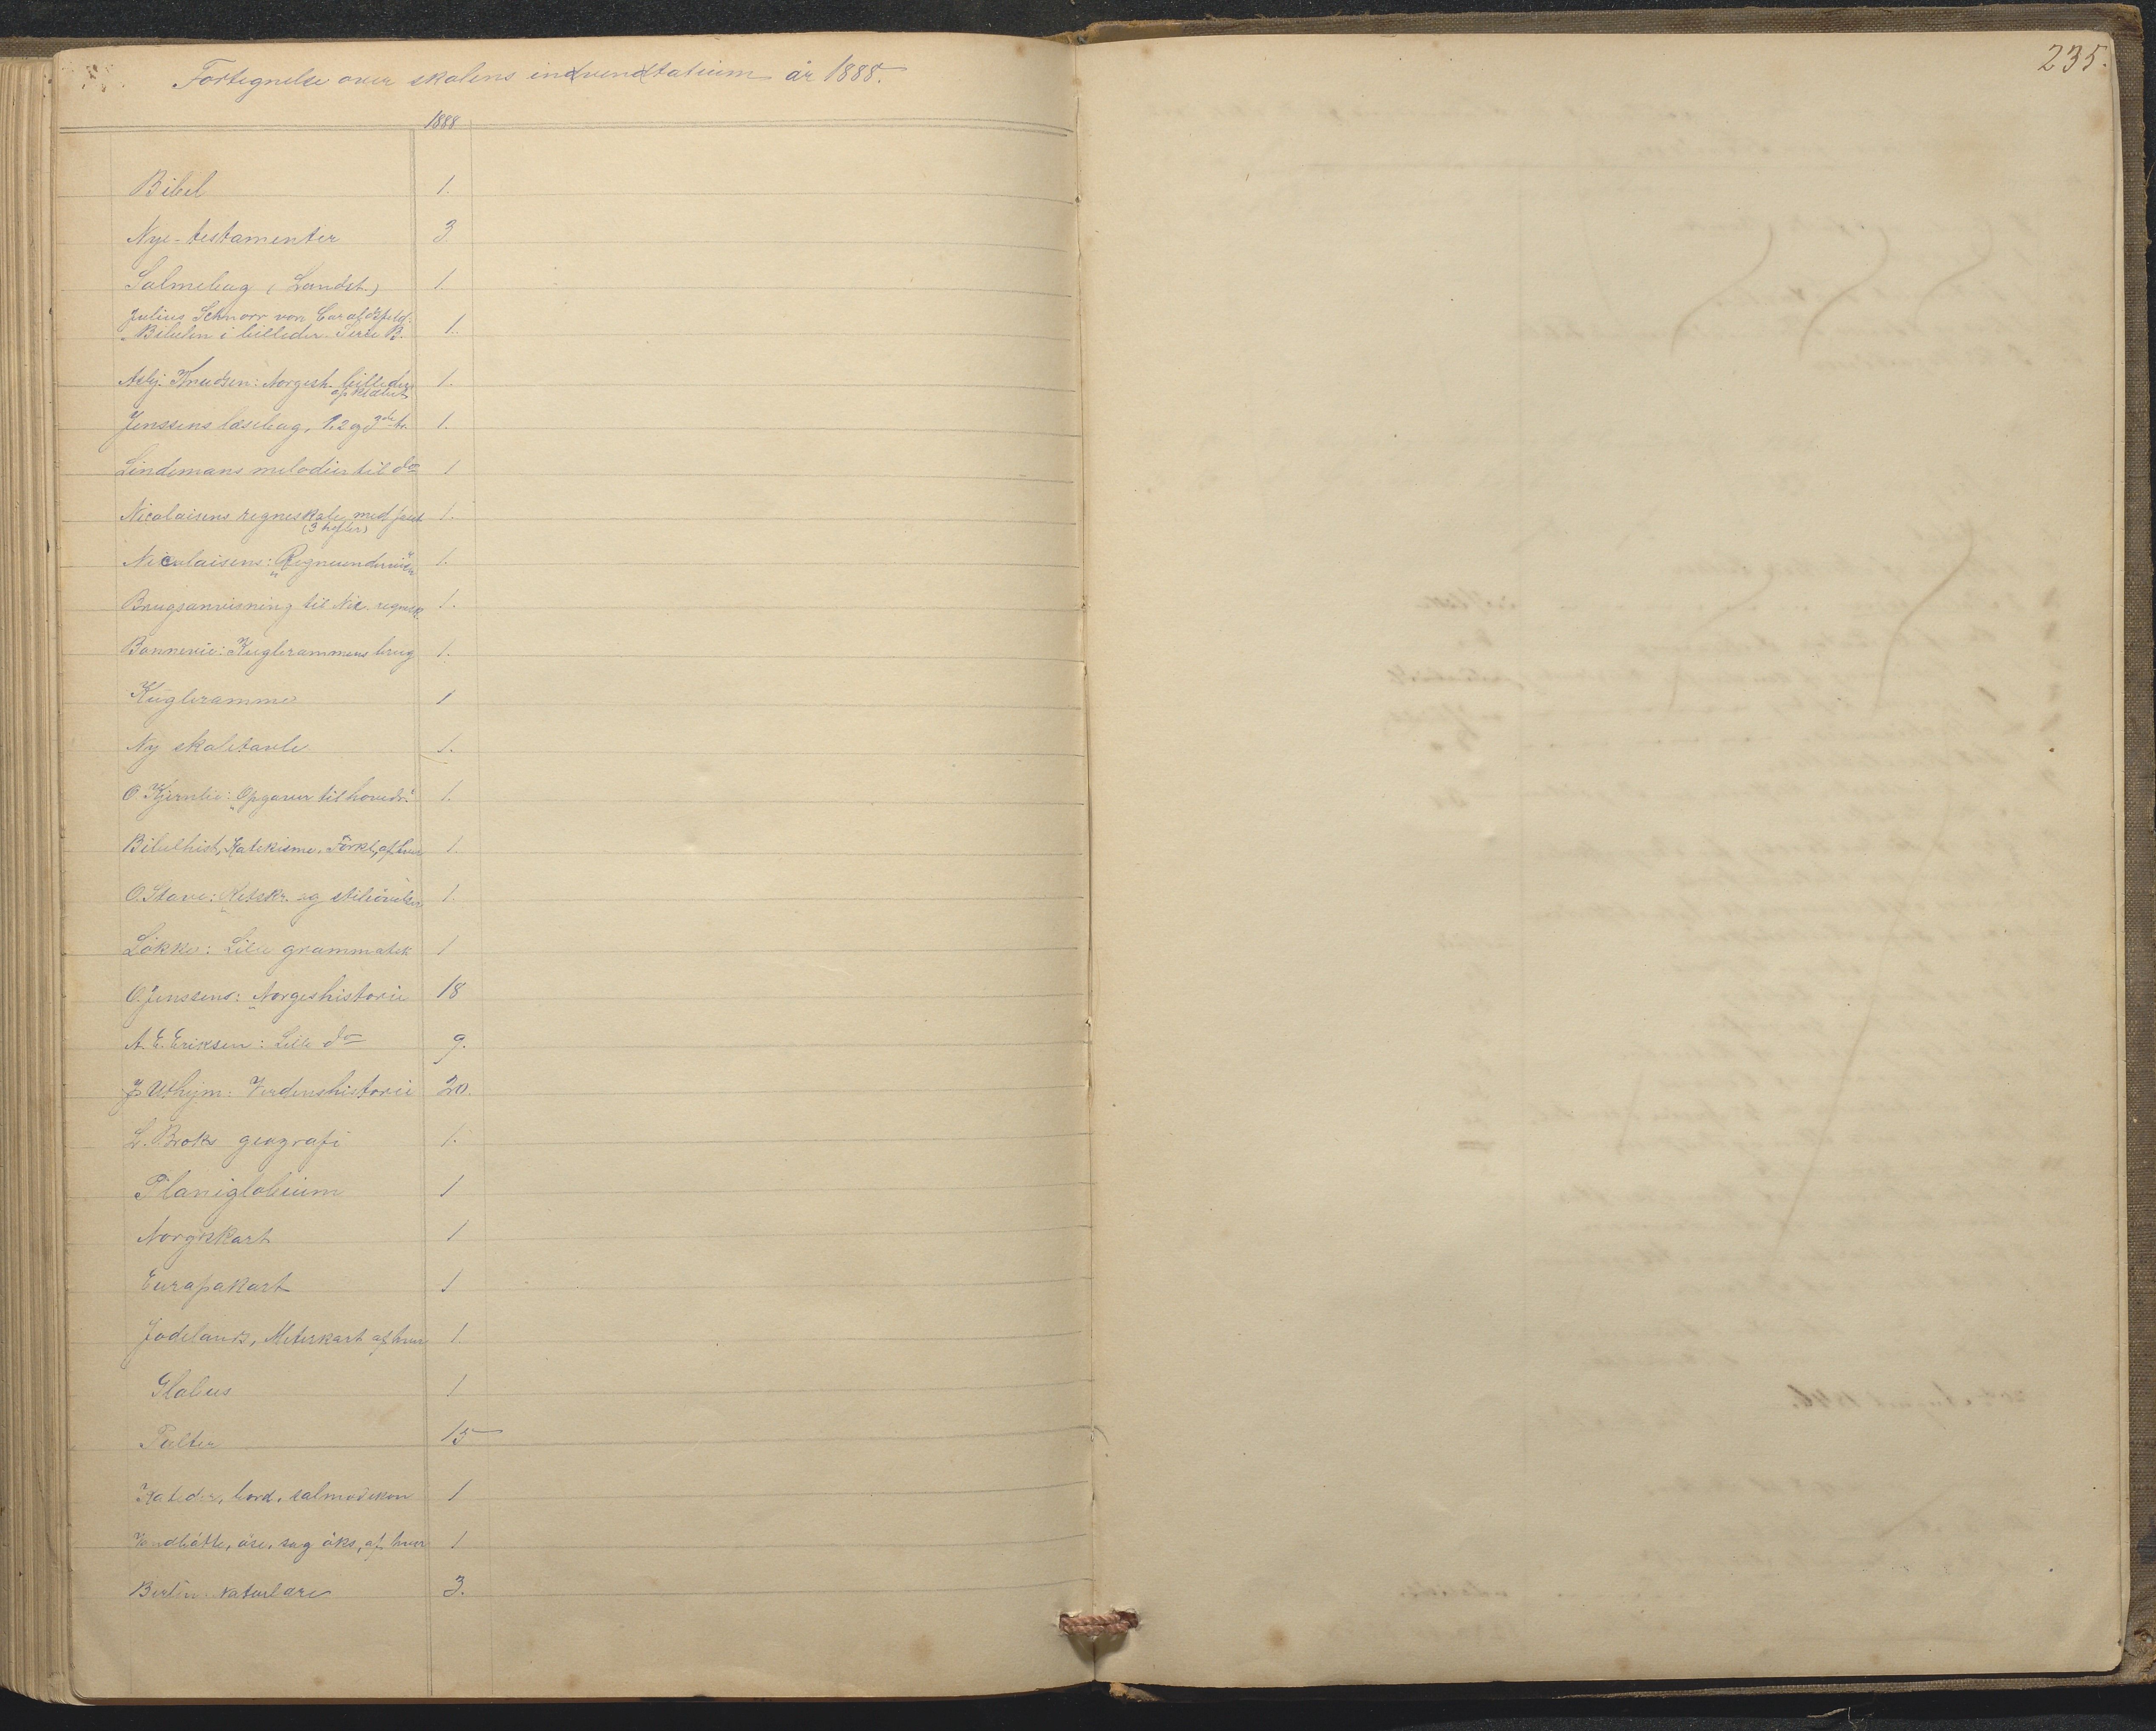 Fortegnelse over skolens indvendtatium år 1888.
235.
1888
Bibel 1.
Nye-testamenter 3
Salmebog (Landst.) 1.
Julius Schnorr von Carolsfeld:
Bibelen i billeder. Serie B. 1.
Asbj. Knudsen: Norgesh. billeder 1.
opklæbet
Jenssens læsebog, 1. 2 og 3die tr. 1.
Lindemans melodier til do 1
Nicolaisens regneskole, med facit 1.
(3 hefter)
Nicolaisens: "Regneundervisn" 1.
Brugsanvisning til Nic. regnesk. 1.
Bonnevie: Kuglerammens brug 1.
Kugleramme 1
Ny skoletavle 1.
O. Kjernlie: "Opgaver til hovedr." 1.
Bibelhist, Katekisme, Forkl, af hver 1.
O. Stave: Retskr. og stiløvelser 1.
Løkke: Lille grammatik 1
O. Jenssens: Norgeshistorie 18
A. E. Eriksen: Lille do 9.
J. Uthejm: Verdenshistorie 20.
L. Broks geografi 1.
Planiglobium 1
Norgeskart 1
Europakart 1
Jødelands, Meterkart af hver 1.
Globus 1
Pulter 15
Kateder, bord, salmodikon 1
Vandbøtte, øse, sag øks, af hver 1
Bertin naturlære 3.